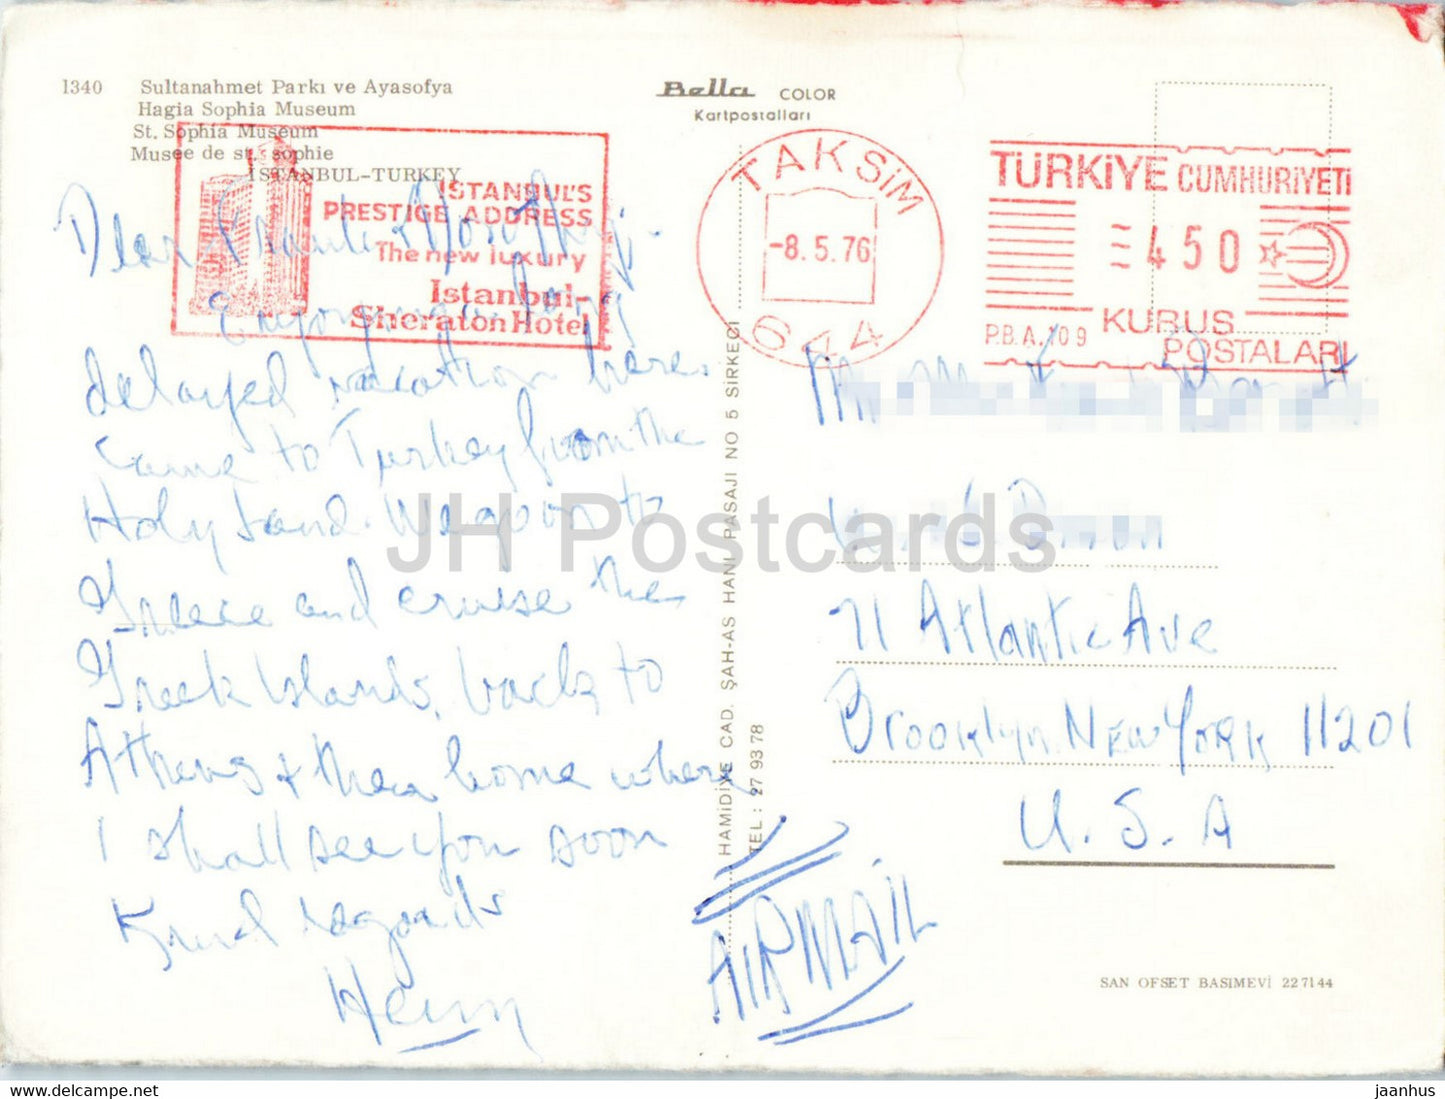 1340 Sultanahmet Parkı ve Ayasofya
Hagia Sophia Museum
St. Sophia Museum
Musee de st. sophie
ISTANBUL-TURKEY
Bella COLOR
Kartpostalları
ISTANBUL'S
PRESTIGE ADDRESS
The new luxury
Istanbul-
Sheraton Hotel
TAKSİM
-8.5.76
644
TÜRKİYE CUMHURİYETİ
450
P.B.A.109 KURUŞ
POSTALARI
Dear & Dorothy:
Enjoying a long
delayed vacation here.
Came to Turkey from the
Holy Land. We go on to
Greece and cruise the
Greek Islands, back to
Athens & then home where
I shall see you soon
Kind regards
HAMİDİYE CAD. ŞAH-AS HANI PASAJI NO 5 SİRKECİ
TEL : 27 93 78
71 Atlantic Ave
Brooklyn New York 11201
U. S. A
AIRMAIL
SAN OFSET BASIMEVİ 227144
JH Postcards
delcampe.net
jaanhus